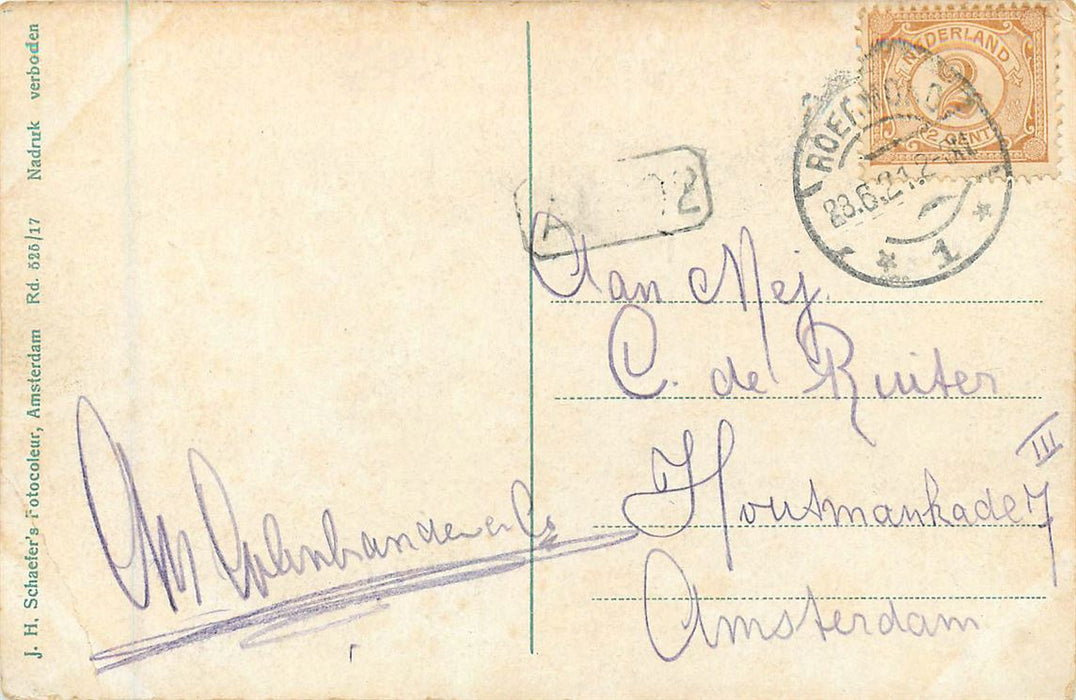 J. H. Schaefer's Fotocoleur, Amsterdam Rd. 525/17 Nadruk verboden
NEDERLAND
2
2 CENT
ROERMOND
28.6.21.2-3N
* 1 *
A 2
Aan Mej.
C. de Ruiter
Houtmankade 7 III
Amsterdam